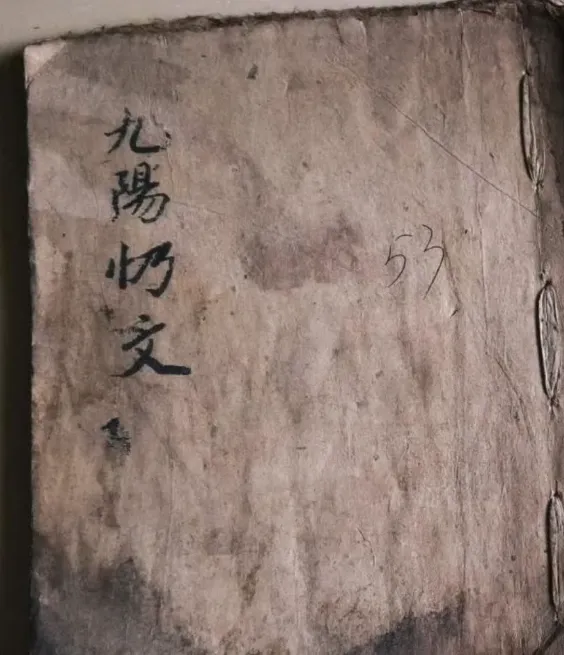 九陽文
53